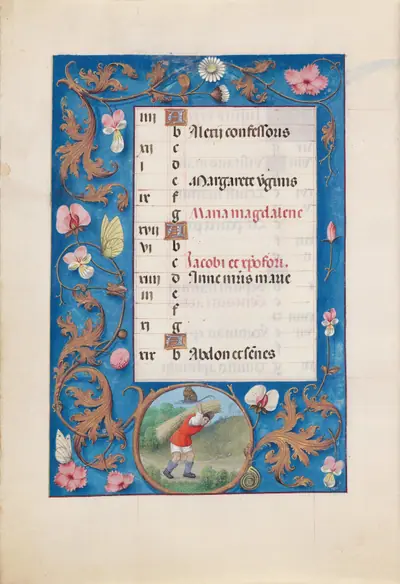 iiij A
b Alexii confessoris
xij c
j d
e Margarete v̄ginis
ix f
g Maria magdalene
xvij A
vj b
c Jacobi et xp̄ofori.
xiiij d Anne mr̄is marie
iij e
f
xj g
A
xix b Abdon et senēs